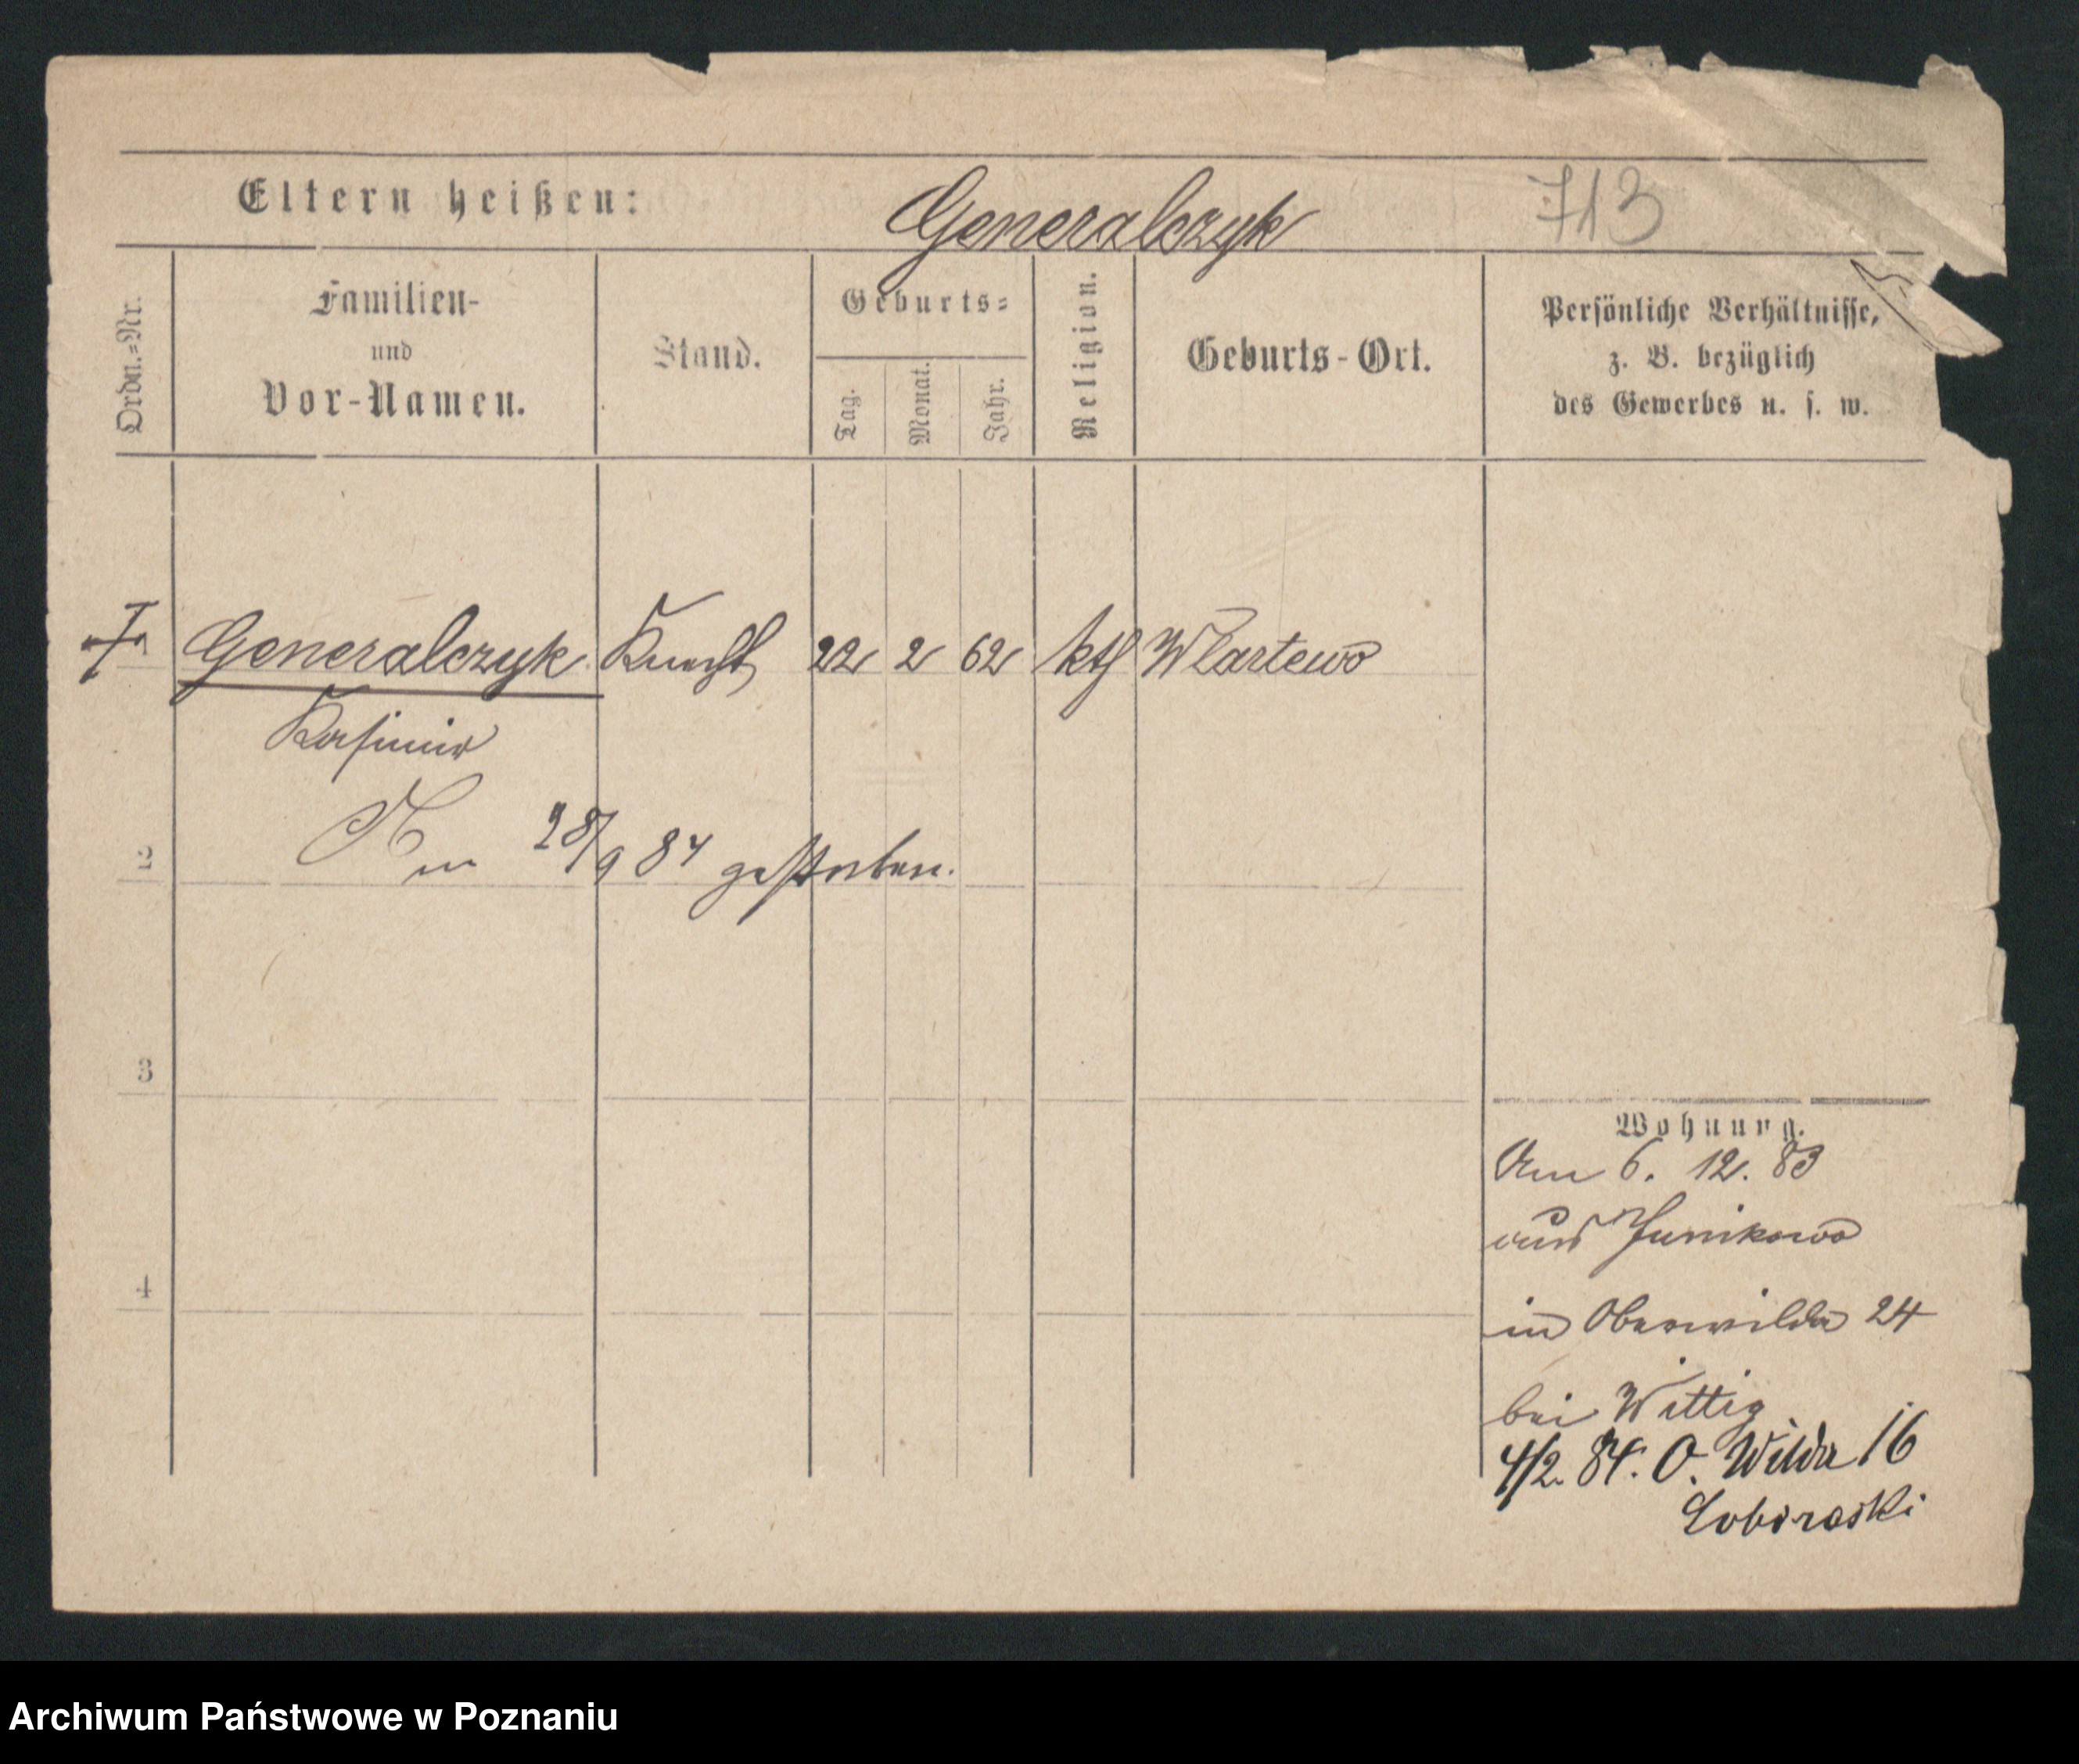 Eltern heißen: Generalczyk 713
Ordn.=Nr.
Familien-
und
Vor-Namen.
Stand.
Geburts=
Tag.
Monat.
Jahr.
Religion.
Geburts-Ort.
Persönliche Verhältnisse,
z. B. bezüglich
des Gewerbes u. s. w.
Generalczyk Knecht 22 2 62 kth Wlartewo
Kasimir
2 Am 28/9 84 gestorben.
3
4
Wohnung.
Am 6. 12. 83
aus Junikowo
in Oberwilda 24
bei Wittig
4/2. 84. O. Wilda 16